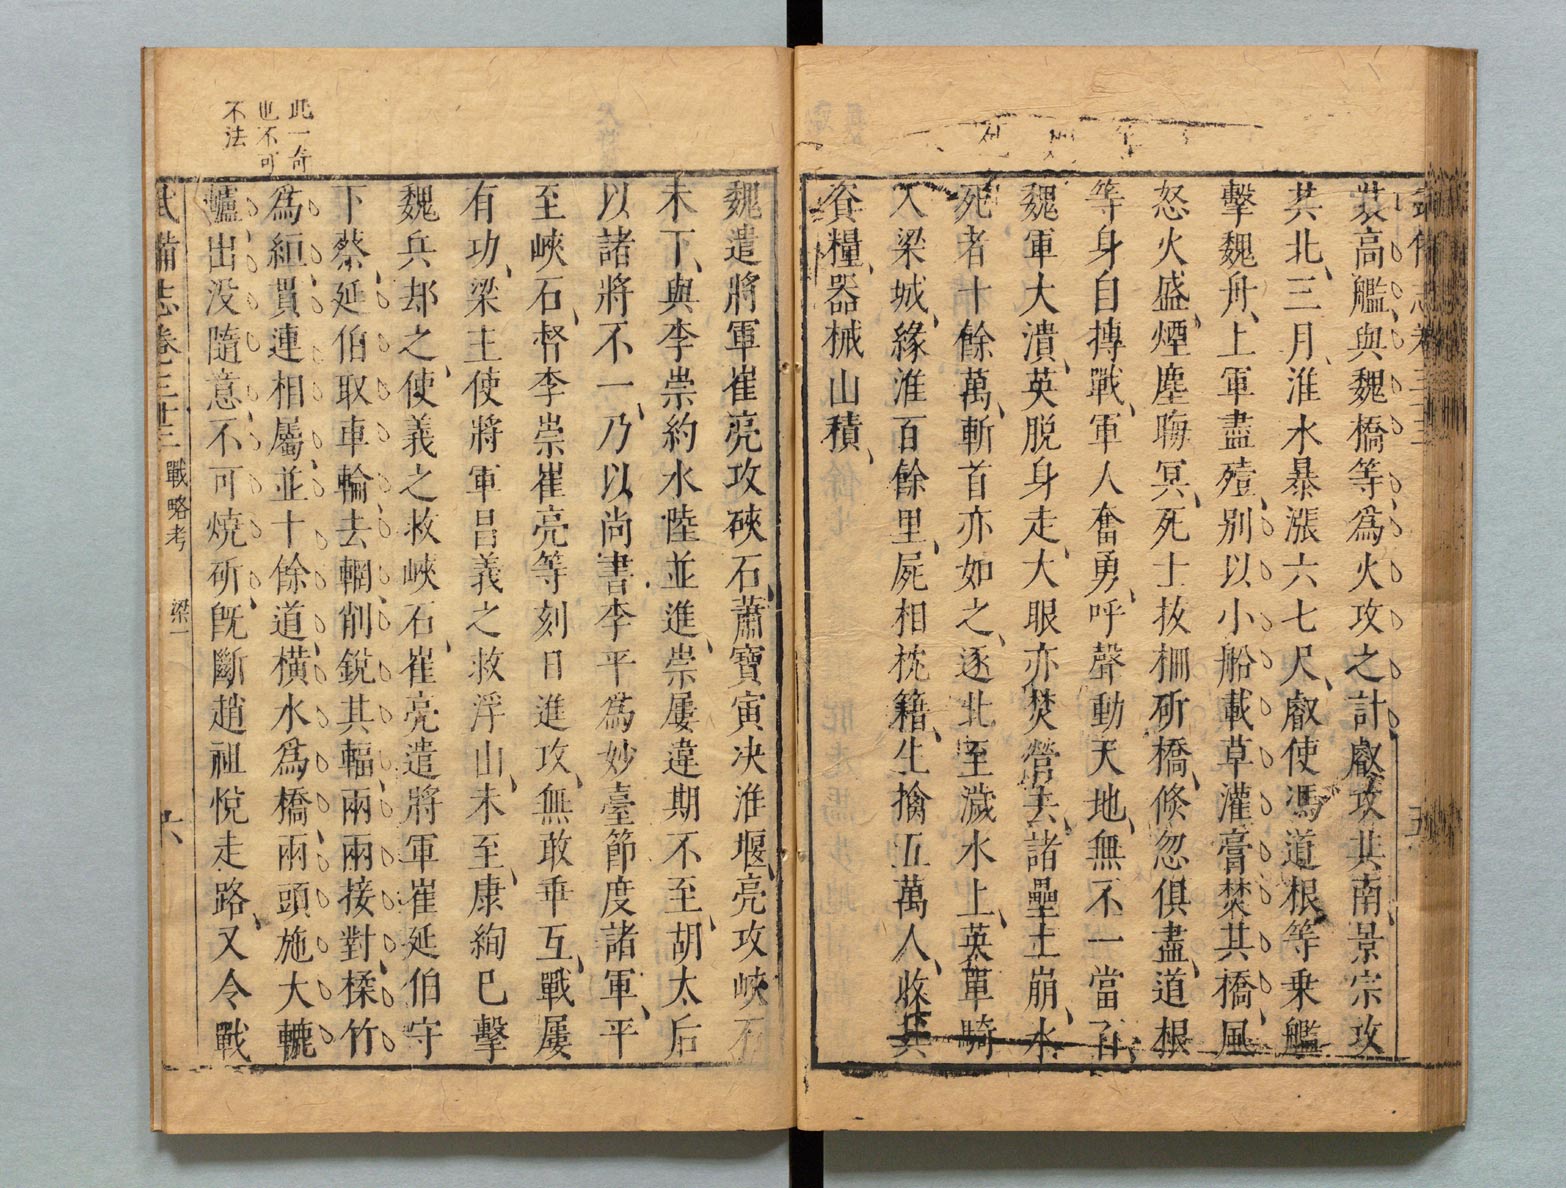 武備志卷三十三
五
裝高艦與魏橋等為火攻之計叡攻其南景宗攻
其北三月淮水暴漲六七尺叡使馮道根等乗艦
擊魏舟上軍盡殪别以小船載草灌膏焚其橋風
怒火盛煙塵晦冥死士抜柵斫橋倐忽俱盡道根
等身自搏戰軍人奮勇呼聲動天地無不一當百
魏軍大潰英脱身走大眼亦焚營去諸壘土崩水
死者十餘萬斬首亦如之逐北至濊水上英單騎
入梁城緣淮百餘里屍相枕籍生擒五萬人收其
資糧器械山積
魏遣將軍崔亮攻硤石蕭寶寅决淮堰亮攻峽石
未下與李崇約水陸並進崇屢違期不至胡太后
以諸將不一乃以尚書李平為妙臺節度諸軍平
至峽石督李崇崔亮等刻日進攻無敢乖互戰屢
有功梁主使將軍昌義之救浮山未至康絢已擊
魏兵却之使義之救峽石崔亮遣將軍崔延伯守
下蔡延伯取車輪去輞削銳其輻兩兩接對揉竹
為絙貫連相屬並十餘道横水為橋兩頭施大轆
轤出没隨意不可燒斫既斷趙祖悅走路又令戰
武備志卷三十三 戰略考 梁一 六
此一奇
也不可
不法